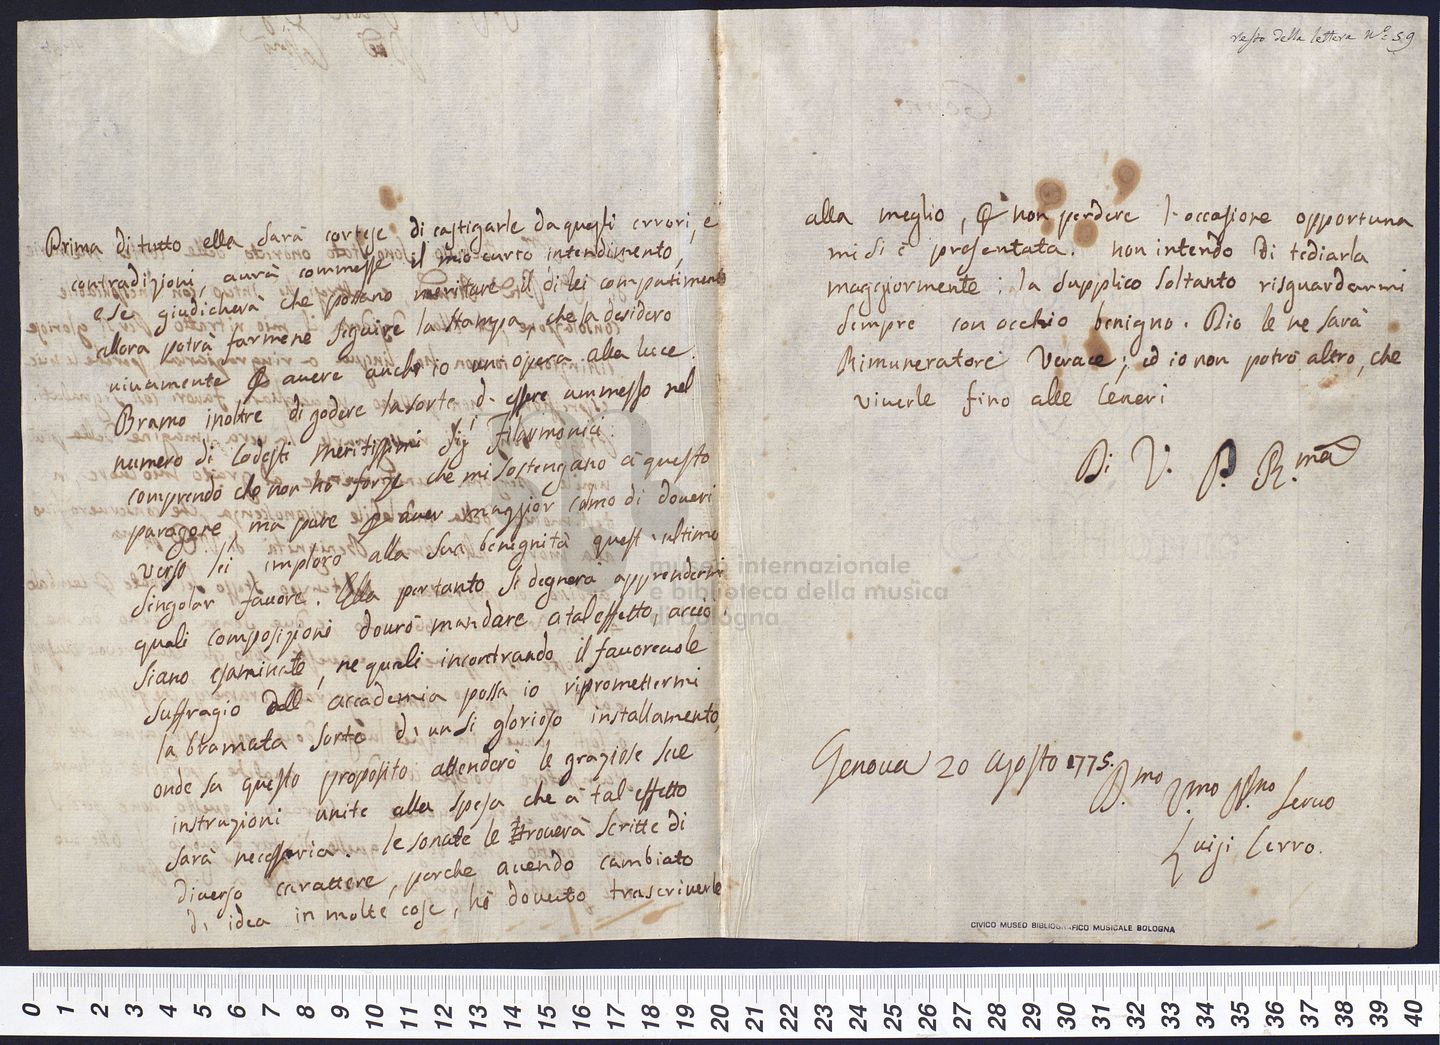 resto della lettera N.° 59
Prima di tutto ella sarà cortese di castigarle da questi errori, e
contradizioni, aurà commesse il mio curto intendimento,
e se giudicherà che possano meritare il di lei compatimento
allora potrà farmene seguire la stampa, che la desidero
uiuamente avere anch'io un opera alla luce
Bramo inoltre di godere la sorte d'essere ammesso nel
numero di codesti meritissimi Sig.ri Filarmonici.
comprendo che non ho forze che mi sostengano à questo
paragone ma pure aver maggior camo di doueri
verso lei imploro alla sua benegnità quest'ultimo
singolar fauore. Ella pertanto si degnerà apprendermi
quali composizioni dourò mandare a tal effetto, acciò
siano esaminate, ne quali incontrando il fauoreuole
suffragio dell accademia possa io ripromettermi
la bramata sorte d'un si glorioso installamento,
onde su questo proposito attenderò le graziose sue
instruzioni unite alla spesa che à tal effetto
sarà necessaria. le sonate le trouerà scritte di
diuerso carattere, perche auendo cambiato
d'idea in molte cose, hò douuto trascriuerle
alla meglio, non perdere l'occasione opportuna
mi si è presentata. non intendo di tediarla
maggiormente; la supplico soltanto risguardarmi
sempre con occhio benigno. Dio le ne sarà
Rimuneratore Verace; ed io non potrò altro, che
viuerle fino alle Ceneri
Di V. P. R.ma
Genoua 20 Agosto 1775.
D.mo V.mo Seruo
Luigi Cerro.
museo internazionale
e biblioteca della musica
di bologna
CIVICO MUSEO BIBLIOGRAFICO MUSICALE BOLOGNA
0 1 2 3 4 5 6 7 8 9 10 11 12 13 14 15 16 17 18 19 20 21 22 23 24 25 26 27 28 29 30 31 32 33 34 35 36 37 38 39 40